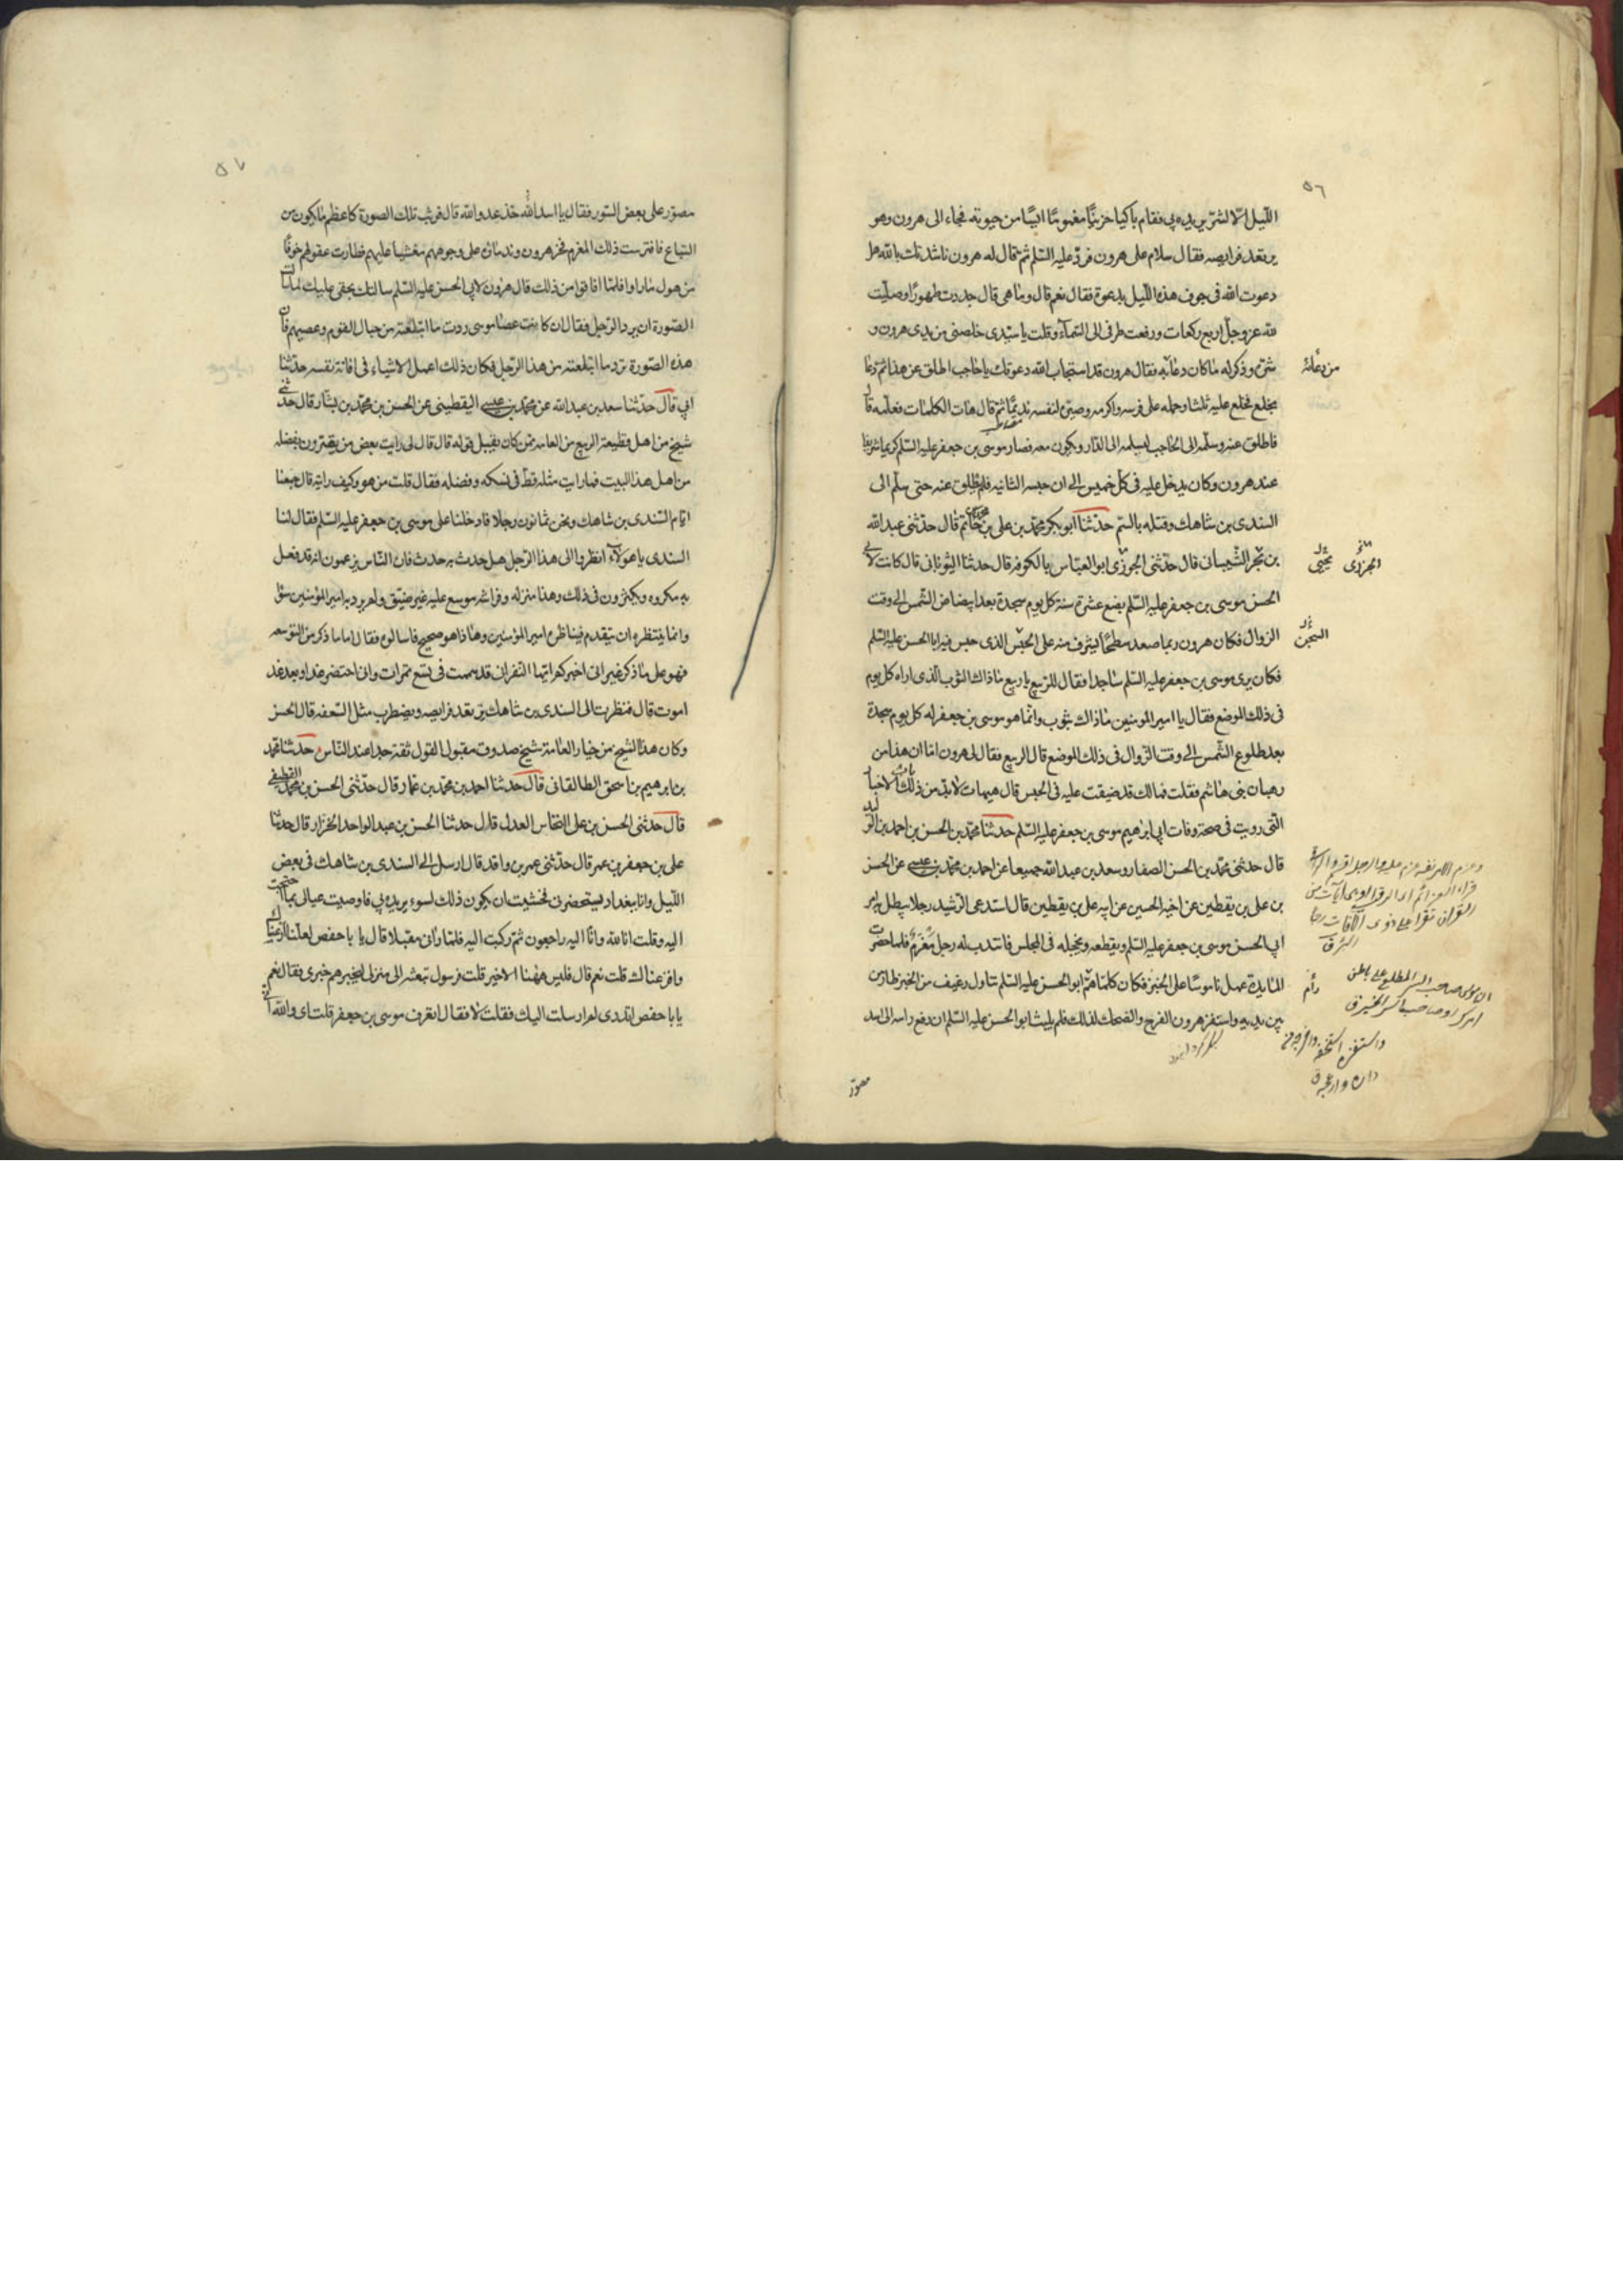 ٥٦
الليل الّا لشرّ يريده بي فقام باكيا حزينًا مغمومًا آيسًا من حيوته فجاء الى هرون وهو
يرتعد فرايصه فقال سلام على هرون فردّ عليه السّلم ثم قال له هرون ناشدتك بالله هل
دعوت الله فى جوف هذه الليل بدعوة فقال نعم قال وما هى قال جددت طهورًا وصليت
لله عز وجل اربع ركعات ورفعت طرفى الى السّمآء وقلت يا سيّدى خلصنى من يدى هرون و
شرّه وذكر له ما كان دعائه فقال هرون قد استجاب الله دعوتك يا حاجب اطلق عن هذا ثم دعا
من دعائه
بخلع فخلع عليه ثلثا وحمله على فرسه واكرمه وصيّره لنفسه نديمًا ثم قال هات الكلمات فعلّمه قال
فاطلق عنه وسلّمه الى الحاجب ليسلمه الى الدّار ويكون معه فصار موسى بن جعفر عليه السّلم كريما شريفا
عند هرون وكان يدخل عليه فى كل خميس الى ان حبسه الثانيه فلم يطلق عنه حتى سلّم الى
السندى بن شاهك وقتله بالسم حدّثنا ابو بكر محمّد بن على بن حاتم قال حدّثنى عبد الله
بن بحر الشّيبانى قال حدّثنى الجوزى ابو العبّاس بالكوفه قال حدثنا الثوبانى قال كانت لابى
يحيى
الحسن موسى بن جعفر عليه السّلم بضع عشرة سنة كل يوم سجدة بعد ابيضاض الشّمس الى وقت
الزوال فكان هرون ربما صعد سطحًا يشرف منه على الحبس الذى حبس فيه ابا الحسن عليه السّلم
السجن
فكان يرى موسى بن جعفر عليه السّلم ساجدا فقال للربيع يا ربيع ما ذاك الثوب الّذى اراه كل يوم
فى ذلك الموضع فقال يا امير المومنين ما ذاك بثوب وانّما هو موسى بن جعفر له كل يوم سجدة
بعد طلوع الشّمس الى وقت الزّوال فى ذلك الموضع قال الربيع فقال لى هرون اما ان هذا من
رهبان بنى هاشم فقلت فما لك قد ضيقت عليه فى الحبس قال هيهات لا بدّ من ذلك الاخبار
الّتى رويت فى صحة وفات ابى ابراهيم موسى بن جعفر عليه السّلم حدثنا محمّد بن الحسن بن احمد بن الوليد
قال حدثنى محمّد بن الحسن الصفار وسعد بن عبد الله جميعا عن احمد بن محمّد بن عيسى عن الحسن
بن على بن يقطين عن اخيه الحسين عن ابيه على بن يقطين قال استدعى الرّشيد رجلا يبطل به امر
ابى الحسن موسى بن جعفر عليه السّلم ويقطعه ويخجله فى المجلس فانتدب له رجل مغرم فلما احضرت
المائدة عمل ناموسًا على الخبز فكان كلما همّ ابو الحسن عليه السّلم تناول رغيف من الخبز طار من
رام
بين يديه واستفزّ هرون الفرح والضحك لذلك فلم يلبث ابو الحسن عليه السّلم ان رفع راسه الى اسد
القران تقرا على ذوى الآفات رجا
مصوّر
٥٧
مصوّر على بعض الستور فقال يا اسد الله خذ عدو الله قال فوثب تلك الصورة كاعظم ما يكون من
السّباع فافترست ذلك المغرم فخر هرون وندمائه على وجوههم مغشيا عليهم فطارت عقولهم خوفًا
من هول ما راوا فلمّا افاقوا من ذلك قال هرون لابى الحسن عليه السّلم سالتك بحقى عليك لما سالت
الصّورة ان يرد الرّجل فقال ان كانت عصا موسى ردت ما ابتلعته من حبال القوم وعصيهم فان
هذه الصّورة ترد ما ابتلعته من هذا الرّجل فكان ذلك اعمل الاشياء فى افاتة نفسه حدّثنا
ابى قال حدّثنا سعد بن عبد الله عن محمّد بن عيسى اليقطينى عن الحسن بن محمّد بن بشّار قال حدّثنى
شيخ من اهل قطيعة الربيع من العامه ممّن كان يقبل قوله قال قال لى رايت بعض من يقرّون بفضله
من اهل هذا البيت فما رايت مثله قطّ فى نسكه وفضله فقال قلت من هو وكيف رايته قال جمعنا
ايّام السّندى بن شاهك ونحن ثمانون رجلا فادخلنا على موسى بن جعفر عليه السّلم فقال لنا
السندى يا هؤلاء انظروا الى هذا الرّجل هل حدث به حدث فان النّاس يزعمون انه قد فعل
به مكروه ويكثرون فى ذلك وهذا منزله وفراشه موسع عليه غير ضيّق ولم يرد به امير المؤمنين سؤا
وانما ينتظره ان يقدم فيناظره امير المؤمنين وها ذا هو صحيح فاسالوه فقال اما ما ذكر من التوسعه
فهو على ما ذكر غير انى اخبركم ايّها النّفر انى قد سممت فى تسع تمرات وانى احتضر غدا وبعد غد
اموت قال فنظرت الى السندى بن شاهك يرتعد فرايصه ويضطرب مثل السّعفه قال الحسن
وكان هذا الشيخ من خيار العامة شيخ صدوق مقبول القول ثقة جدا عند النّاس حدثنا محمّد
بن ابرهيم بن اسحق الطالقانى قال حدثنا احمد بن محمّد بن عمّار قال حدّثنى الحسن بن محمد القطيعى
قال حدثنى الحسن بن على النخّاس العدل قال حدثنا الحسن بن عبد الواحد الخزار قال حدثنا
على بن جعفر بن عمر قال حدّثنى عمر بن واقد قال ارسل الىّ السندى بن شاهك فى بعض
الليل وانا ببغداد يستحضرنى فخشيت ان يكون ذلك لسوء يريده بى فاوصيت عيالى بما احتجت
اليه وقلت انا لله وانّا اليه راجعون ثم ركبت اليه فلمّا رآنى مقبلا قال يا با حفص لعلّنا ارعبناك
وافزعناك قلت نعم قال فليس ههنا الا خير قلت فرسول تبعثه الى منزلى ليخبرهم خبرى فقال نعم
يا با حفص اتدرى لم ارسلت اليك فقلت لا فقال اتعرف موسى بن جعفر قلت اى والله انى